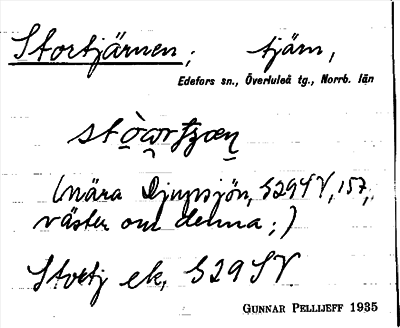 Stortjärnen; tjärn,
Edefors sn., Överluleå tg., Norrb. län
(nära Djupsjön, S29SV, 157,
väster om denna;)
Stortj ek, S29SV
GUNNAR PELLIJEFF 1935